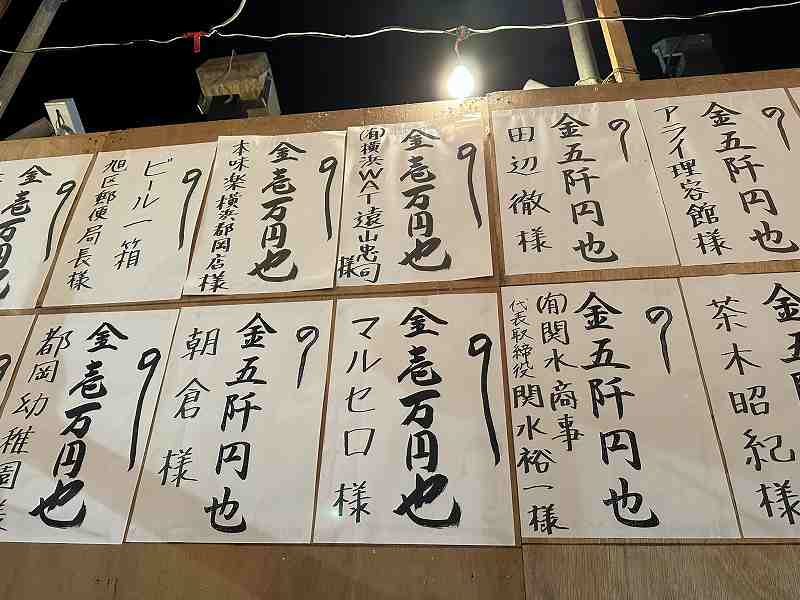 金五阡円也
アライ理容館様
金五阡円也
田辺徹様
金壱万円也
(有)横浜WAT遠山忠司様
金壱万円也
本味楽横浜都岡店様
ビール一箱
旭区郵便局長様
金壱万円也
金五阡円也
茶木昭紀様
金五阡円也
(有)関水商事
代表取締役 関水裕一様
金壱万円也
マルセロ様
金五阡円也
朝倉様
金壱万円也
都岡幼稚園様